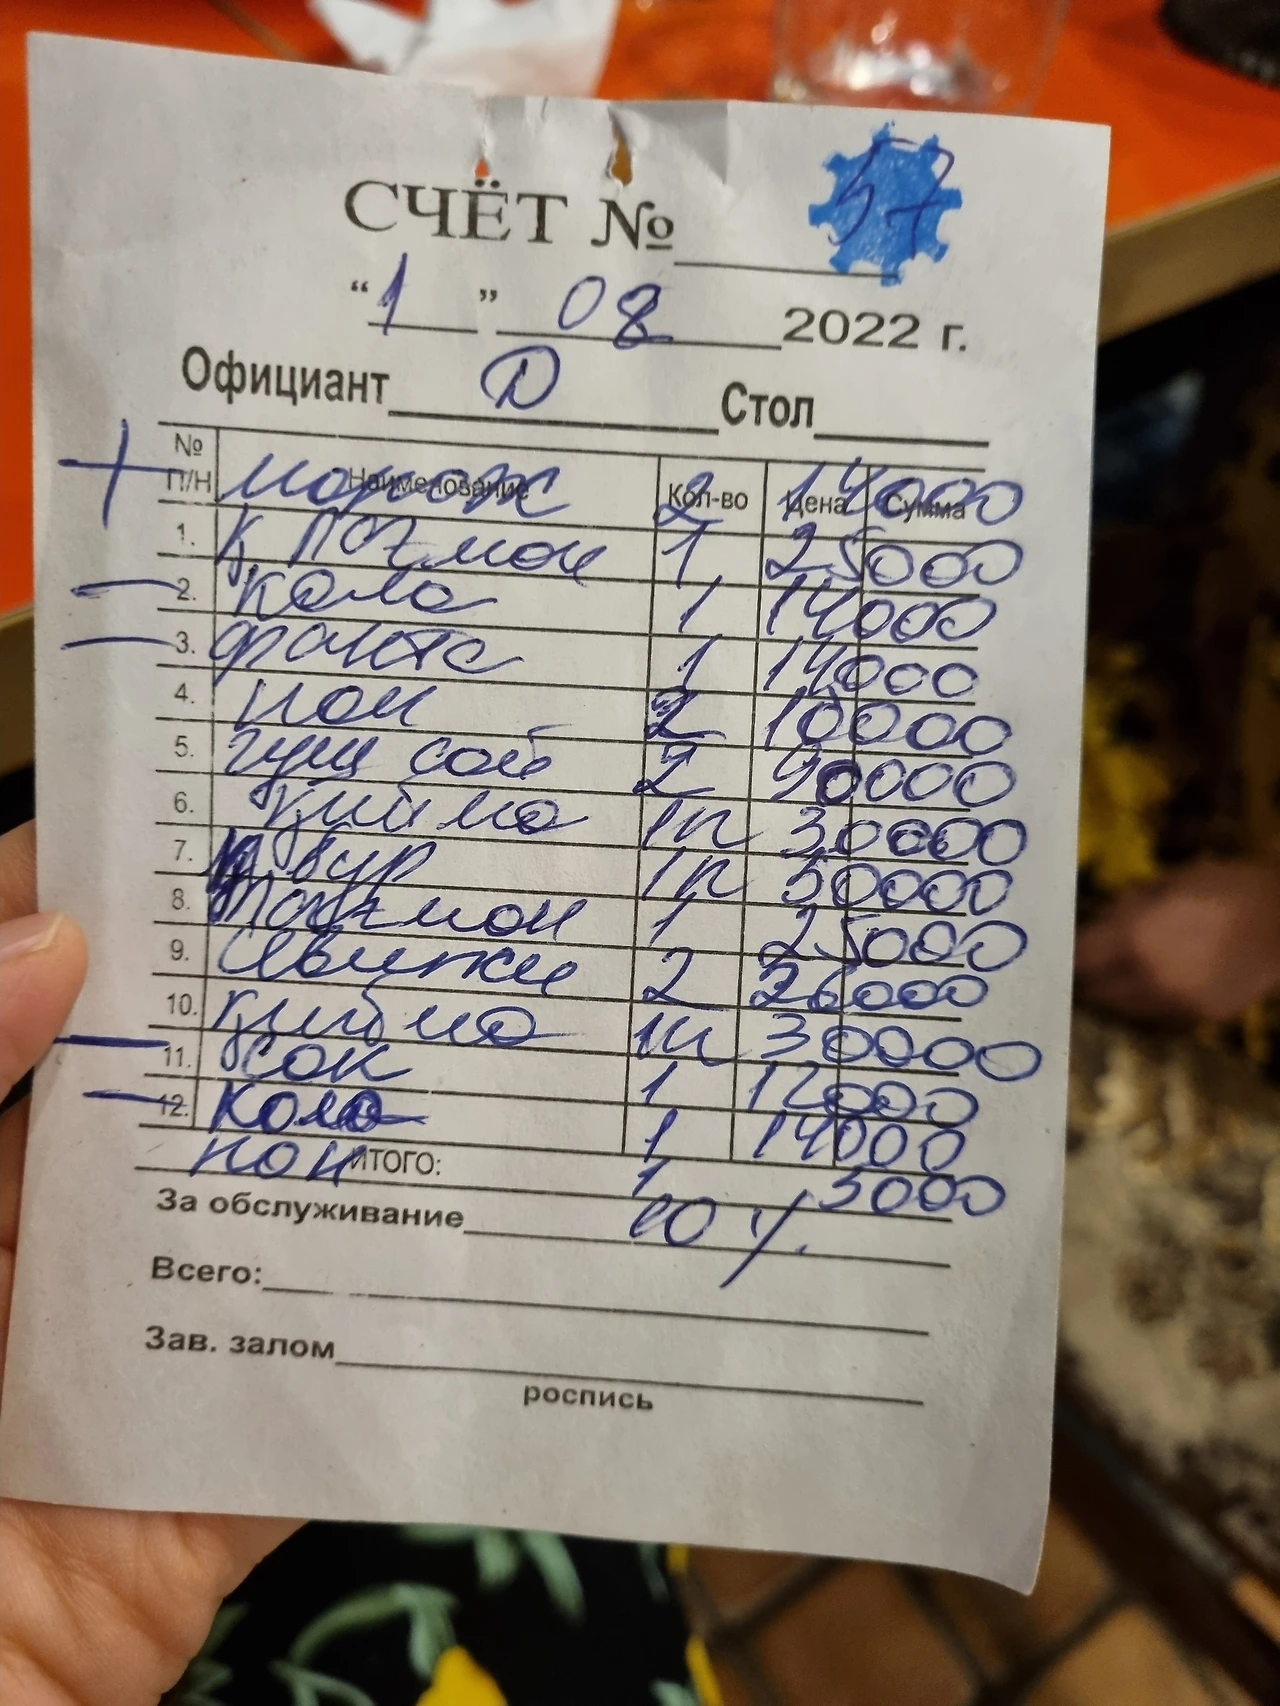 СЧЁТ № 57
“1” 08 2022 г.
Официант D Стол
№ П/Н Наименование Кол-во Цена Сумма
морож 2 14000
1. К 1 25000
2. кола 1 14000
3. фанта 1 14000
4. нон 2 10000
5. гущ 2 90000
6. қийма 1п 30000
7. 1п 50000
8. 1 25000
9. 2 26000
10. қийма 1п 30000
11. сок 1 12000
12. кола 1 14000
нон ИТОГО: 1 5000
За обслуживание 10 %
Всего:
Зав. залом
роспись